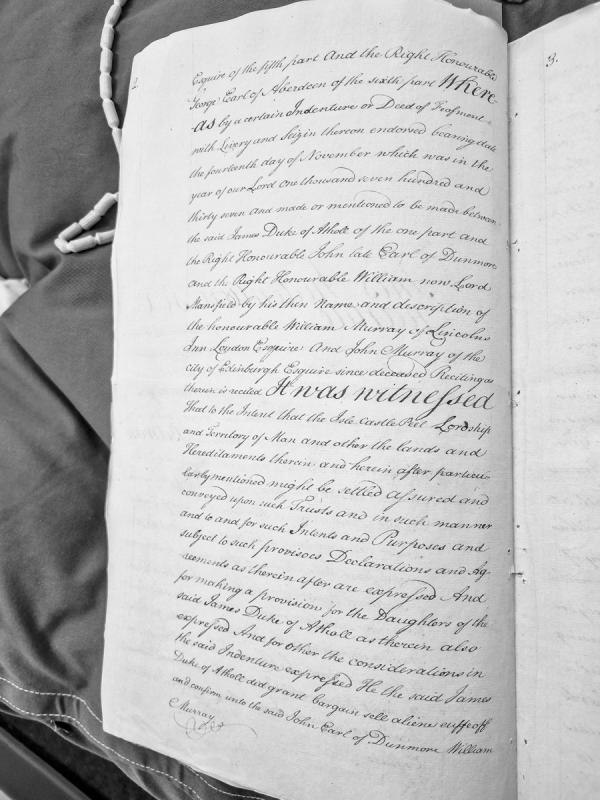 2.
Esquire of the fifth part And the Right Honourable
George Earl of Aberdeen of the sixth part Where
as by a certain Indenture or Deed of Feofment
with Livery and Seizin thereon endorsed bearing date
the fourteenth day of November which was in the
year of our Lord one thousand seven hundred and
thirty seven and made or mentioned to be made between
the said James Duke of Atholl of the one part and
the Right Honourable John late Earl of Dunmore
and the Right Honourable William now Lord
Mansfield by his then Name and description of
the honourable William Murray of Lincolns
Inn London Esquire And John Murray of the
city of Edinburgh Esquire since deceased Reciting as
therein is recited It was witnessed
that to the Intent that the Isle Castle Peel Lordship
and Territory of Man and other the lands and
Hereditaments therein and herein after particu-
larly mentioned might be settled assured and
conveyed upon such Trusts and in such manner
and to and for such Intents and Purposes and
subject to such provisoes Declarations and Ag-
reements as therein after are expressed And
for making a provision for the Daughters of the
said James Duke of Atholl as therein also
expressed And for other the considerations in
the said Indenture expressed He the said James
Duke of Atholl did grant bargain sell aliene enffeoff
and confirm unto the said John Earl of Dunmore William
Murray
3.